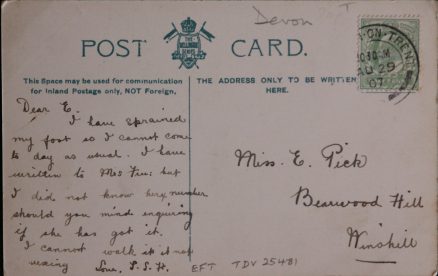 Devon
POST CARD.
THE WELLINGTON SERIES
This Space may be used for communication
for Inland Postage only, NOT Foreign.
THE ADDRESS ONLY TO BE WRITTEN
HERE.
-ON-TRENT
10.30 AM
AU 29
07
Dear E.
I have sprained
my foot so I cannot come
to day as usual. I have
written to Mrs but
I did not know her number
should you mind inquiring
if she has got it.
I cannot walk it is
vexing Love, S.S.H.
Miss. E. Pick
Bearwood Hill
Winshill
EFT TDV 25481